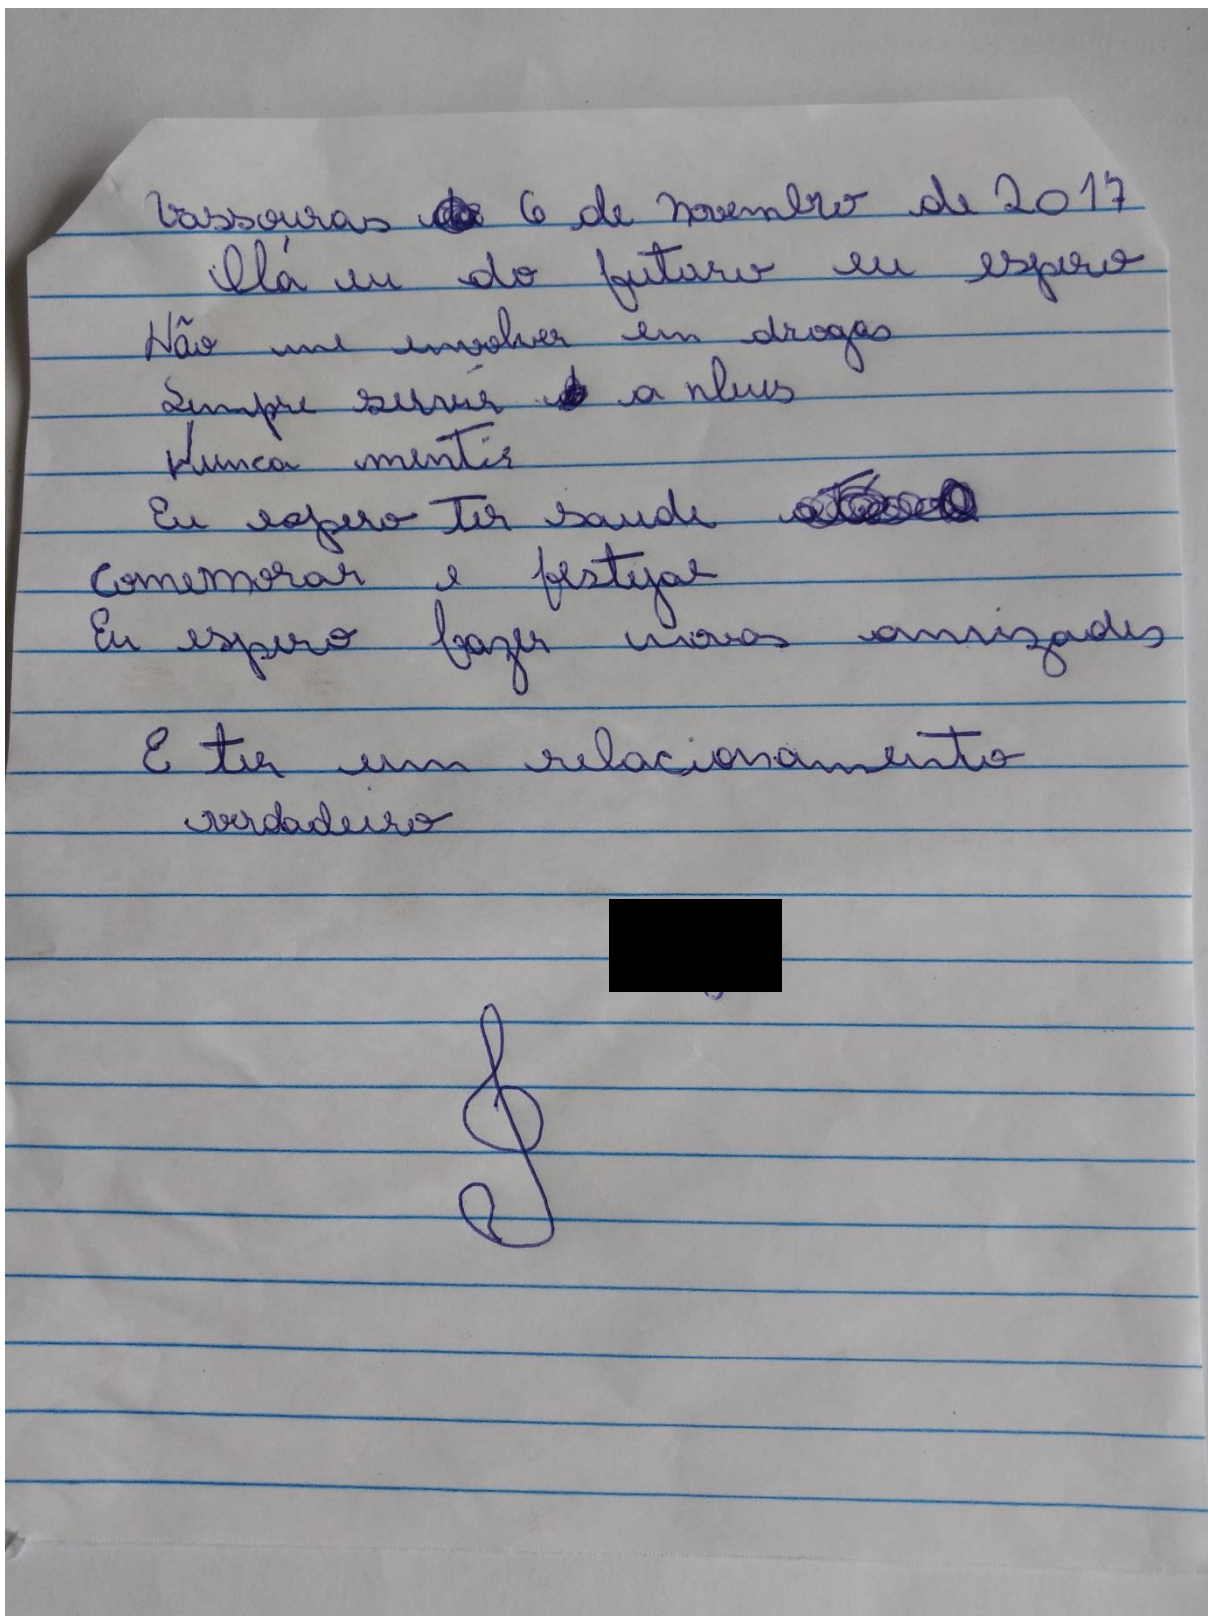 Vassouras 6 de novembro de 2017
Olá eu do futuro eu espero
Não me envolver em drogas
Sempre servir a Deus
Nunca mentir
Eu espero ter saude
comemorar e festejar
Eu espero fazer novas amizades
E ter um relacionamento
verdadeiro